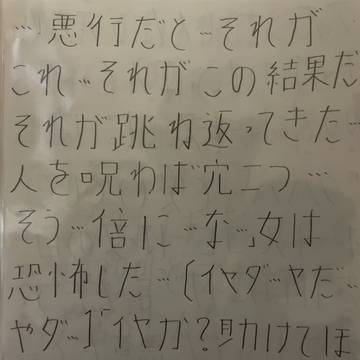 …悪行だと…それが
これ…それがこの結果だ
それが跳ね返ってきた…
人を呪わば穴二つ…
そう…倍に…な」女は
恐怖した…〔イヤダ…ヤだ…
やダ…〕「イヤか?助けてほ